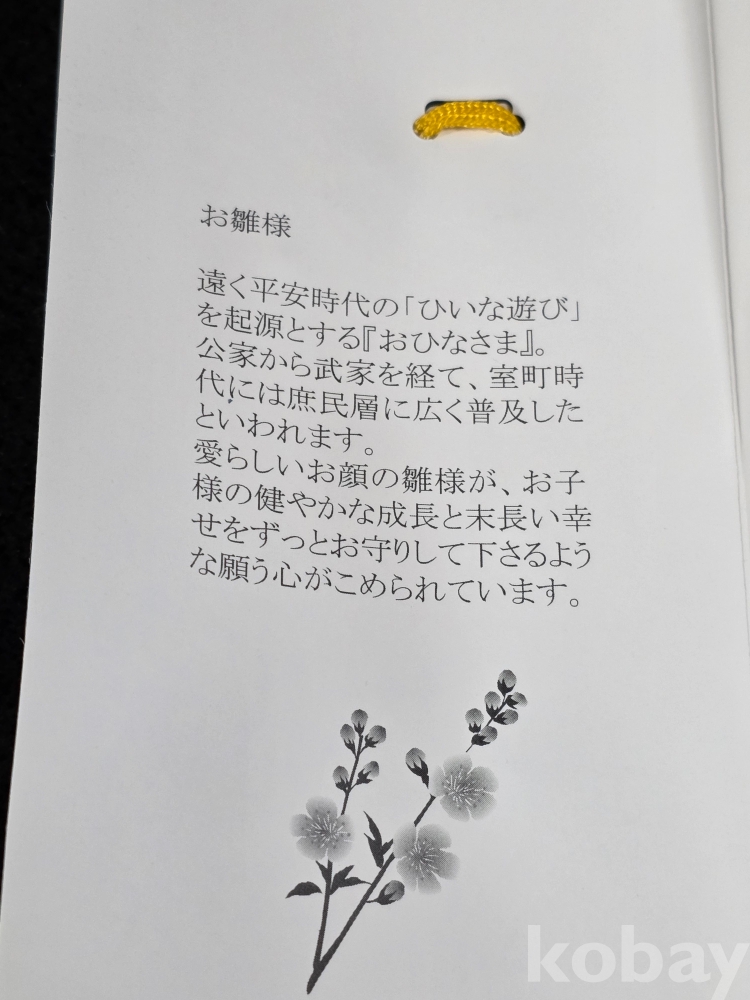 お雛様
遠く平安時代の「ひいな遊び」
を起源とする『おひなさま』。
公家から武家を経て、室町時
代には庶民層に広く普及した
といわれます。
愛らしいお顔の雛様が、お子
様の健やかな成長と末長い幸
せをずっとお守りして下さるよう
な願う心がこめられています。
kobay